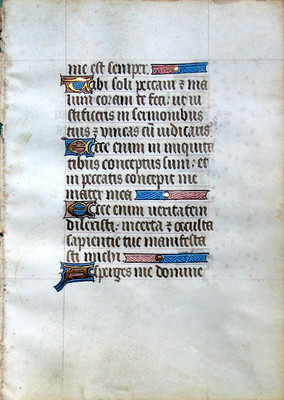 me est semper.
Tibi soli peccavi ⁊ ma
lum coram te feci: ut iu
stificeris in sermonibus
tuis ⁊ vincas cū iudicaris.
Ecce enim in iniquita
tibus conceptus sum: et
in peccatis concepit me
mater mea
Ecce enim veritatem
dilexisti: incerta ⁊ occulta
sapientie tue manifesta
sti michi
Asperges me domine